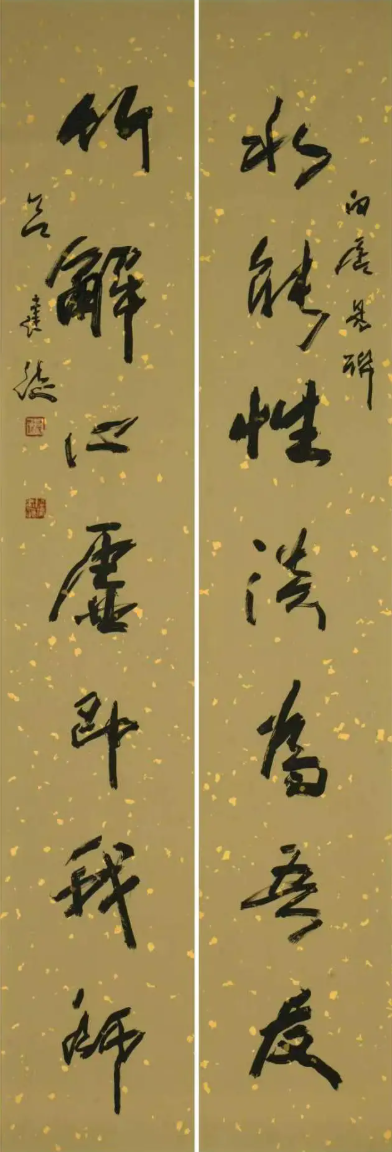 白居易聯
水能性淡為吾友
竹解心虛即我師